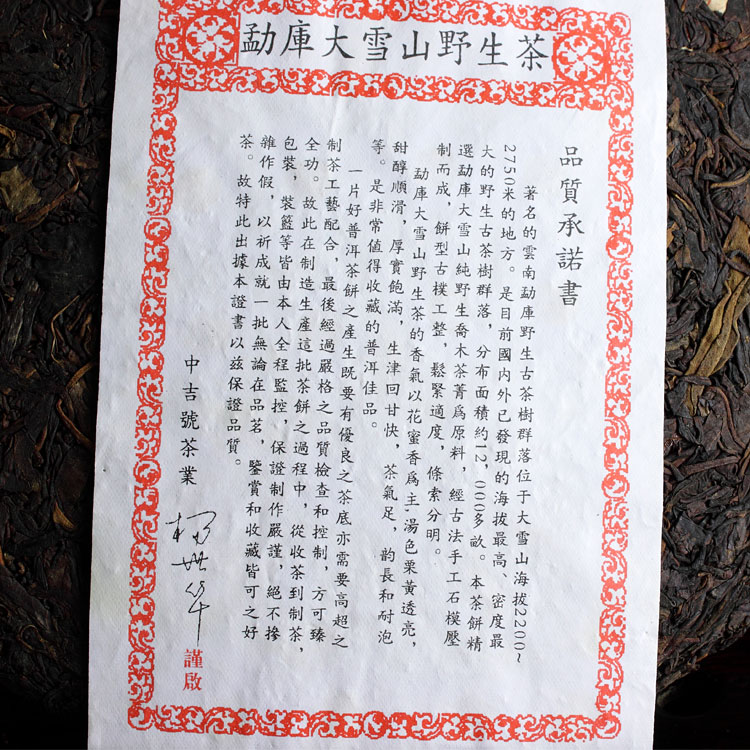 勐庫大雪山野生茶
品質承諾書
著名的雲南勐庫野生古茶樹群落位于大雪山海拔2200~
2750米的地方。是目前國内外已發現的海拔最高、密度最
大的野生古茶樹群落，分布面積約12,000多畝。本茶餅精
選勐庫大雪山純野生喬木茶菁爲原料，經古法手工石模壓
制而成，餅型古樸工整，鬆緊適度，條索分明。
勐庫大雪山野生茶的香氣以花蜜香爲主·湯色栗黄透亮，
甜醇順滑，厚實飽滿，生津回甘快，茶氣足，韵長和耐泡
等。是非常值得收藏的普洱佳品。
一片好普洱茶餅之產生既要有優良之茶底亦需要高超之
制茶工藝配合，最後經過嚴格之品質檢查和控制，方可臻
全功。故此在制造生產這批茶餅之過程中，從收茶到制茶，
包裝，裝籃等皆由本人全程監控，保證制作嚴謹，絕不摻
雜作假，以祈成就一批無論在品茗，鑒賞和收藏皆可之好
茶。故特此出據本證書以兹保證品質。
中吉號茶業
謹啟